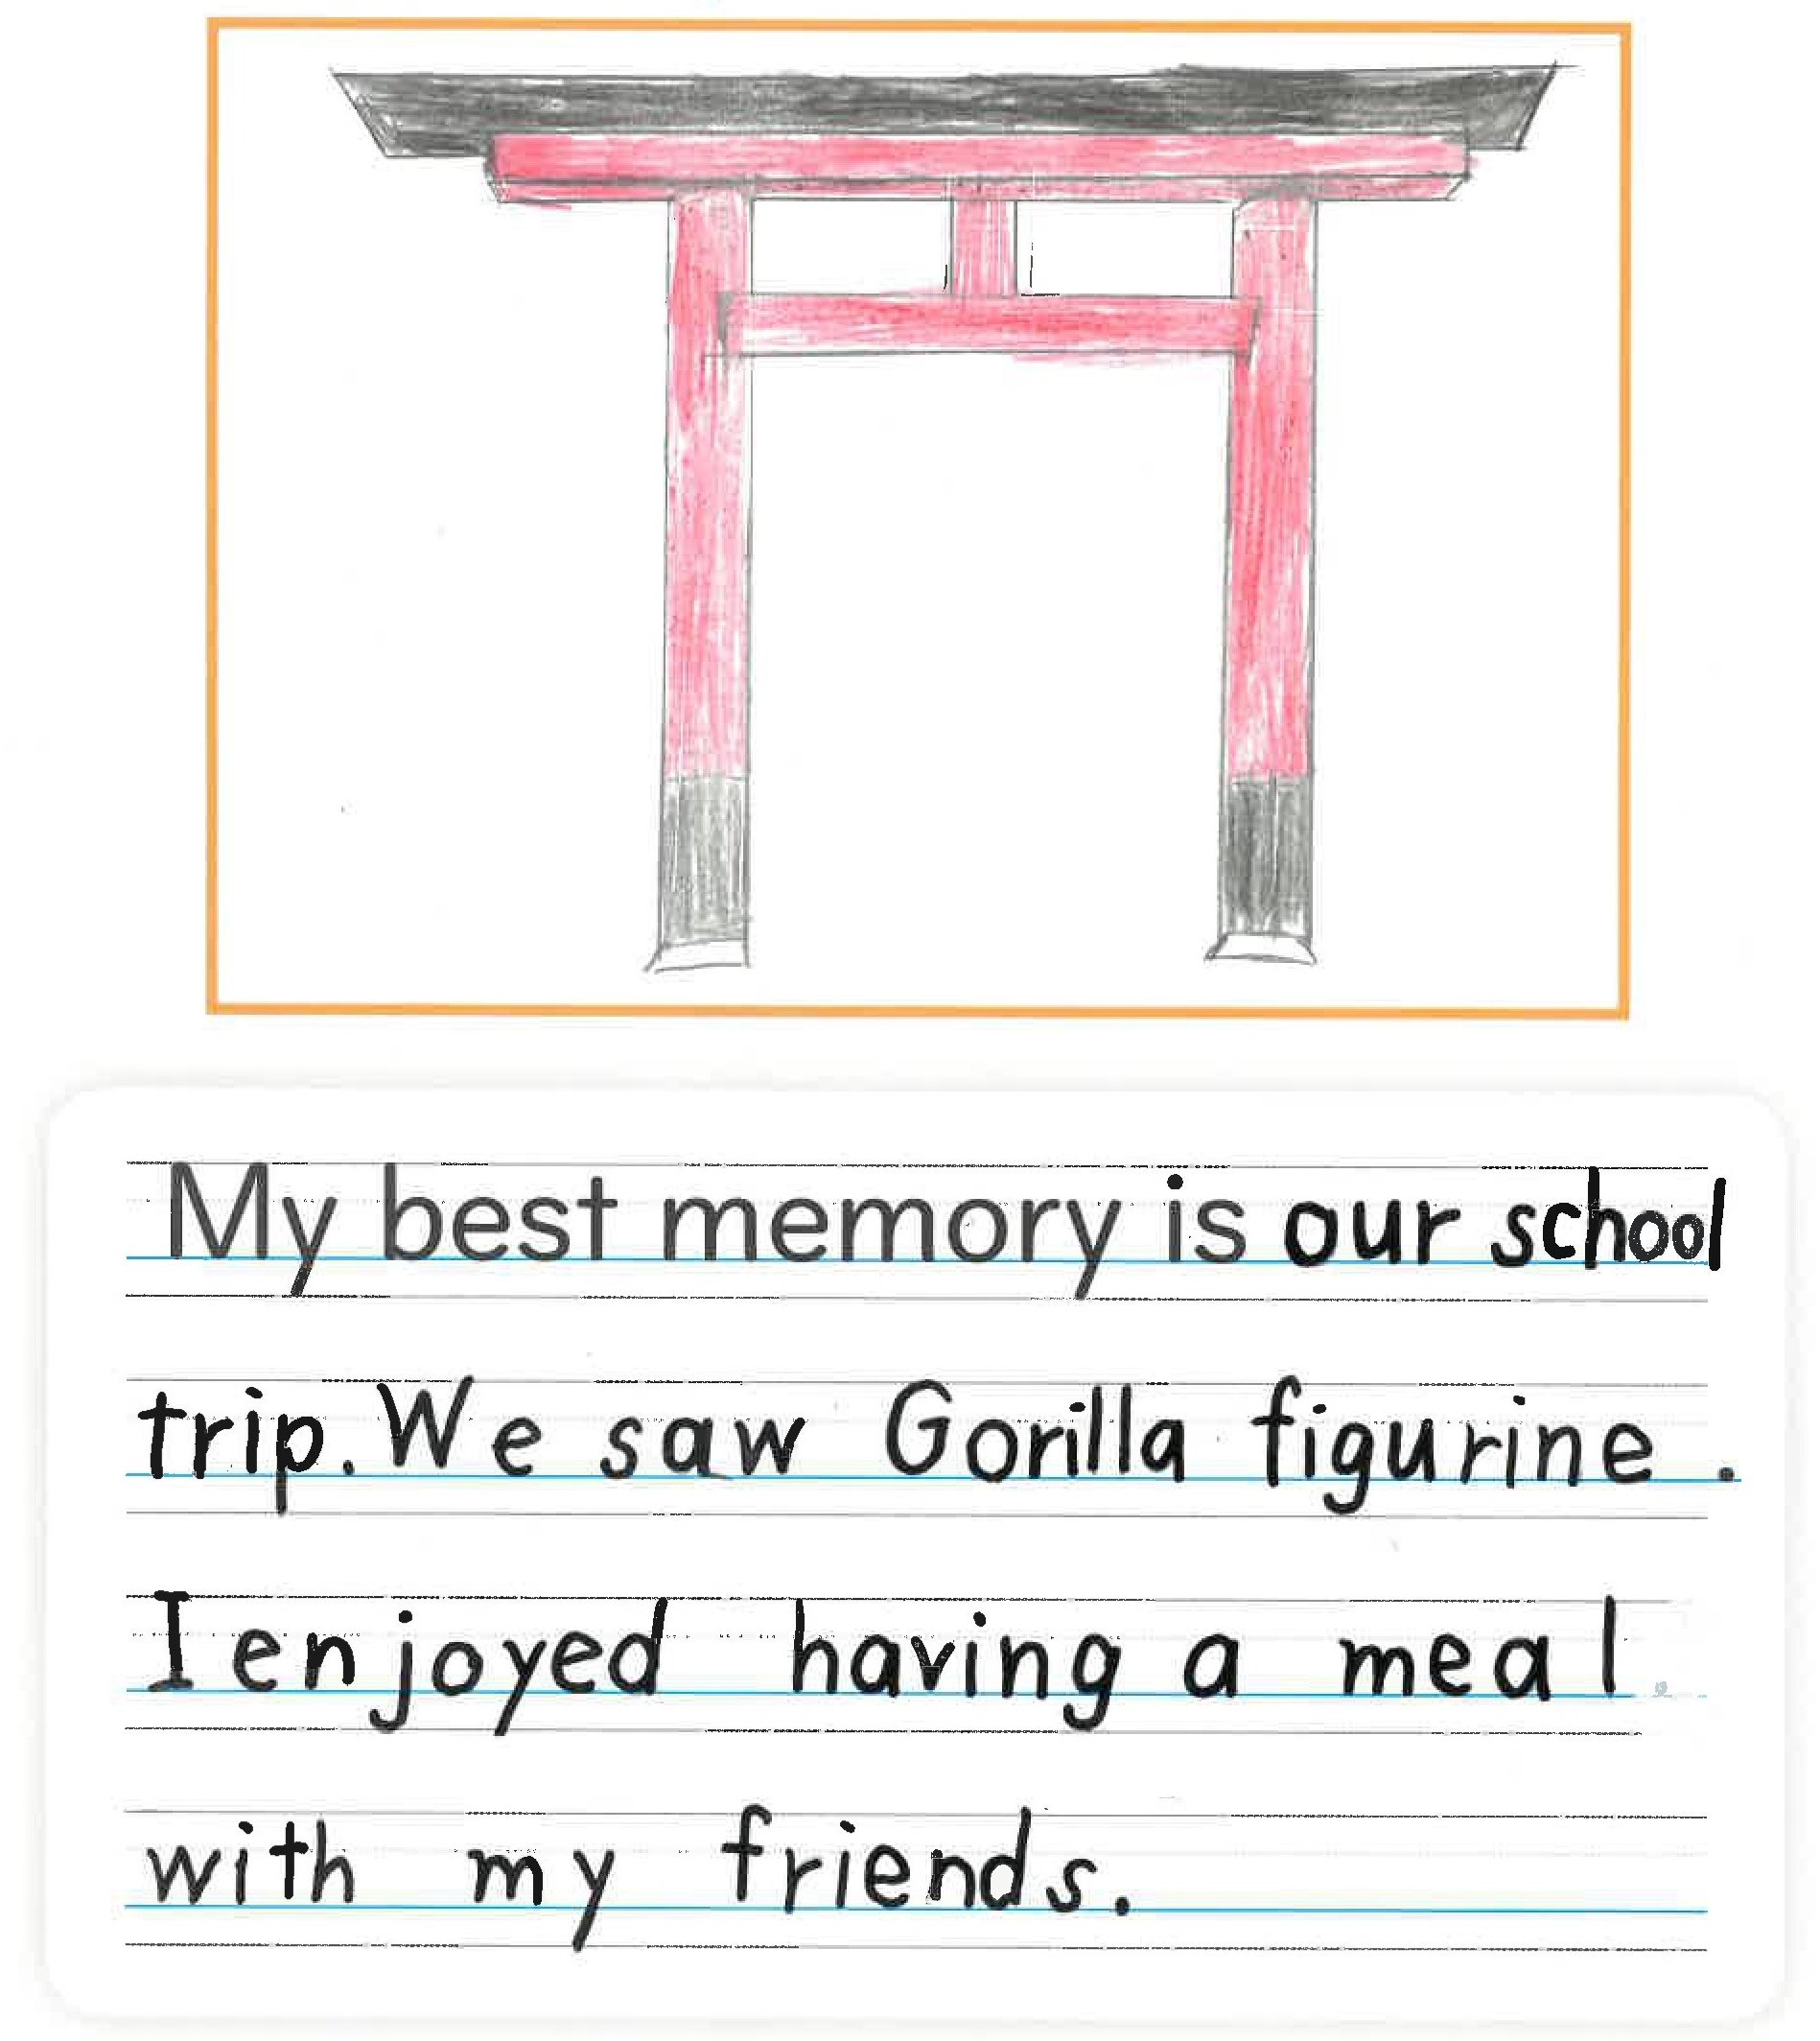 My best memory is our school
trip. We saw Gorilla figurine.
I enjoyed having a meal
with my friends.